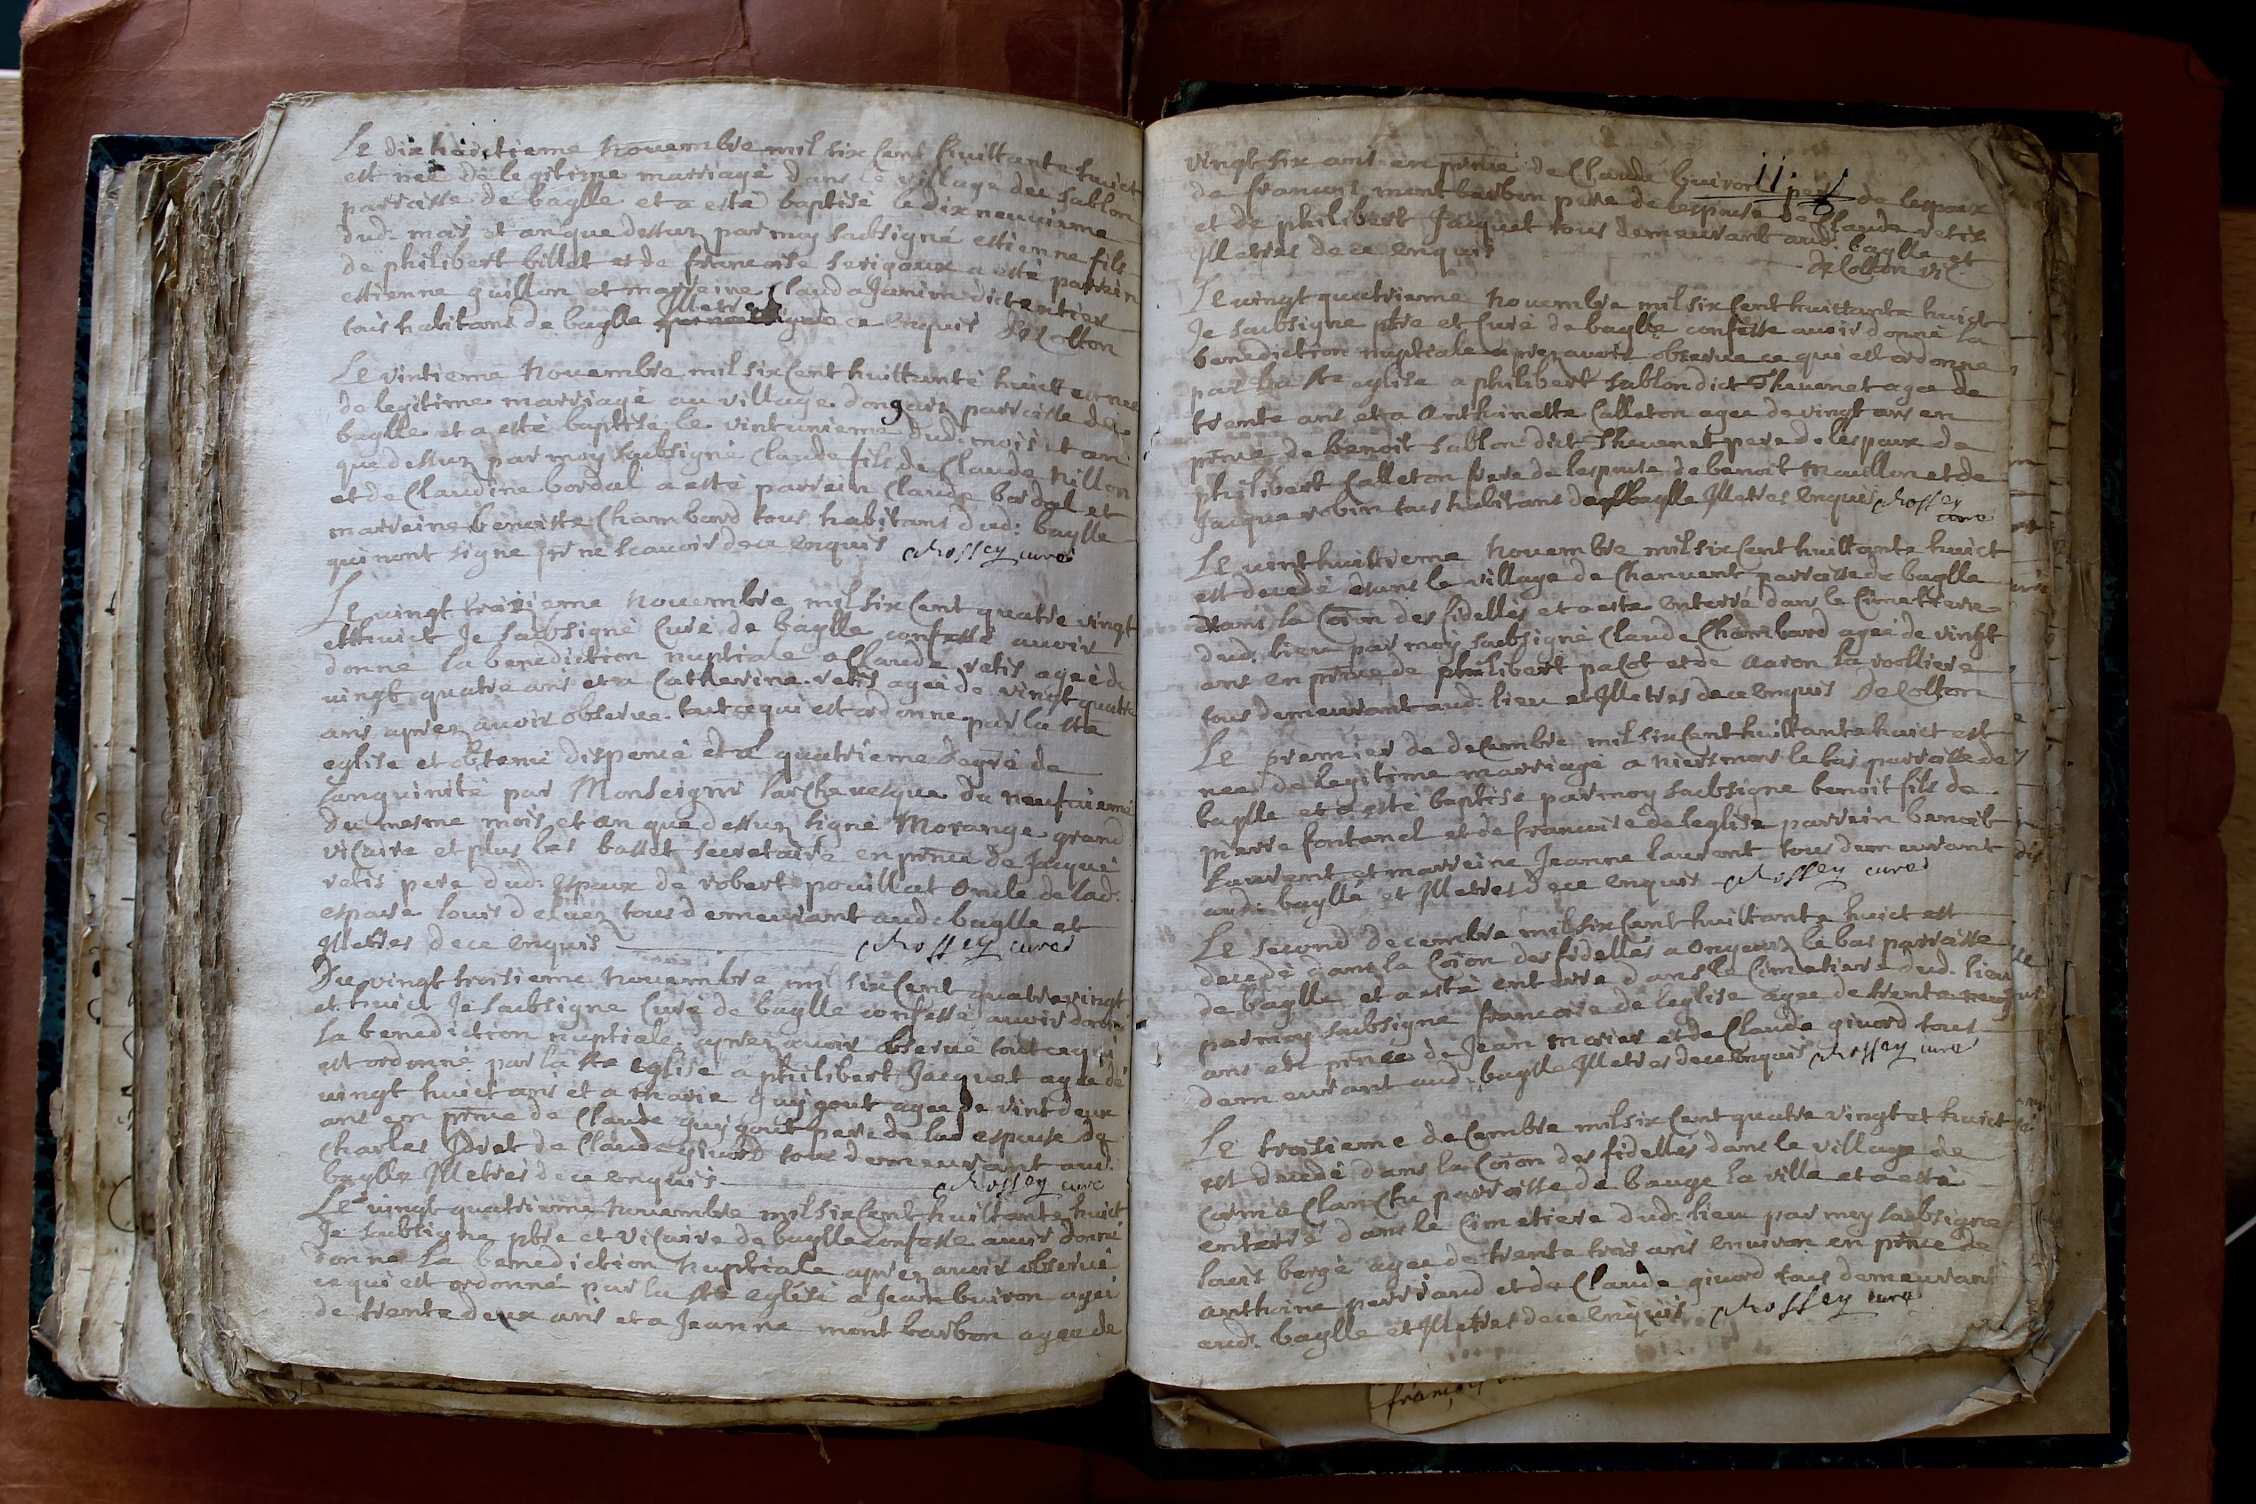 Le dix huictieme Novembre mil six Cent huittante huict
est née de legitime marriage dans le village des sablon
parroisse de baglle et a esté baptisé le dix neuvieme
dud. mois et an que dessus par moy soubsigné estienne fils
de philibert billot et de francoise serigoux a esté parrein
estienne guillon et marreine Clauda Janin dict
Illetres
tous habitans de baglle ce enquis DeColton
Le vintieme Novembre mil six Cent huittante huict est nee
de legitime marriage au village dongeur parroisse de
baglle et a esté baptisé le vintunieme dud. mois et an
que dessuz par moy soubsigné Claude fils de Claude Nillon
et de Claudine bordal a esté parrein Claude bordal et
marreine benoiste Chambard tous habitans dud: baglle
qui nont signe pr ne scavoir de ce enquis Chossey curé
Le vingt troisieme Novembre mil six Cent quatre vingt
et huict Je soubsigné Curé de baglle confesse avoir
donné la benediction nuptiale a Claude retis ageé de
vingt quatre ans et a Catherine retis ageé de vingt quatre
ans aprez avoir observe tout ce qui est ordonne par la ste
eglise et obtenu dispence et al quatrieme degré de
Canguinité par Monseignr larchevesque du neufvieme
du mesme mois et an que dessuz signé Morange grand
viCaire et plus bas basset secretaire en prñce de Jacque
retis pere dud: Espoux de robert pouillat oncle de lad:
espouse louis deluez tous demeurant aud: baglle et
Illetres de ce enquis Chossey curé
Du vingt troisieme Novembre mil six Cent quatre vingt
et huict Je soubsigne Curé de baglle confesse avoir donne
la benediction nuptiale aprez avoir observé tout ce qui
est ordonné par la ste eglise a philibert Jacquet agee de
vingt huict ans et a marie quigout agee de vint deux
ans en prñce de Claude quigout pere de lad espouse de
Charles et de Claude givord tous demeurant aud:
baglle Illetres de ce enquis Chossey curé
Le vingt quatrieme Novembre mil six Cent huittante huict
Je soubsigne pbre et viCaire de baglle confesse avoir donné
donne la benediction nuptiale aprez avoir observé
ce qui est ordonné par la ste eglise a Jean buiron ageé
de trente deux ans et a Jeanne mont barbon agee de
vingt six ans en prñce de Claude buiron pere de lespoux
de francois mont barbon pere de lespouse de Claude retis
et de philibert Jacquet tous demeurant aud: baglle et
Illetres de ce enquis DeColton viC
Le vingt quatrieme Novembre mil six Cent huittante huict
Je soubsigne pbre et Curé de baglle confesse avoir donné la
benediction nuptiale aprez avoir observe ce qui est ordonne
par la ste eglise a philibert sablon dict Thevenet agee de
trente ans et a Anthoinette Calleton agee de vingt ans en
prñce de benoit sablon dict Thevenet pere de lespoux de
philibert Calleton frere de lespouse de benoit Maullon et de
Jacque robin tous habitans de baglle Illetres enquis Chossey
curé
Le vint huittieme Novembre mil six Cent huittante huict
est decede dans le village de Chanvent parroisse de baglle
dans la Coïon des fidelles et a este Enterré dans le Cimetiere
dud: lieu par moy soubsigné Claude Chambard ageé de vingt
ans en prñce de philibert palot et de Aaron la voolliere
tous demeurant aud: lieu et Illetres de ce enquis DeColton
Le premier de decembre mil six Cent huittante huict est
nee de legitime marriage a niermont le bas parroisse de
baglle et a esté baptisé par moy soubsigne benoit fils de
pierre fontanel et de francoise de leglise parrein benoit
laurent et marreine Jeanne laurent tous demeurant
aud: baglle et Illetres de ce enquis Chossey curé
Le second decembre mil six Cent huittante huict est
decedé dans la Coïon des fidelles a ongeurs le bas parroisse
de baglle et a esté enterre dans le Cimetiere dud: lieu
par moy soubsigne francoise de leglise agee de trente
ans en prñce de Jean morier et de Claude givord tous
demeurant aud: baglle Illetres de ce enquis Chossey curé
Le troisieme deCembre mil six Cent quatre vingt et huict
est decedé dans la Coïon des fidelles dans le village de
Corma parroisse de bauge la ville et a esté
enterré dans le Cimetiere dud: lieu par moy soubsigne
louis bergé agee de trente trois ans environ en prñce de
anthoine perriand et de Claude givord tous demeurant
aud: baglle et Illetres de ce enquis Chossey curé